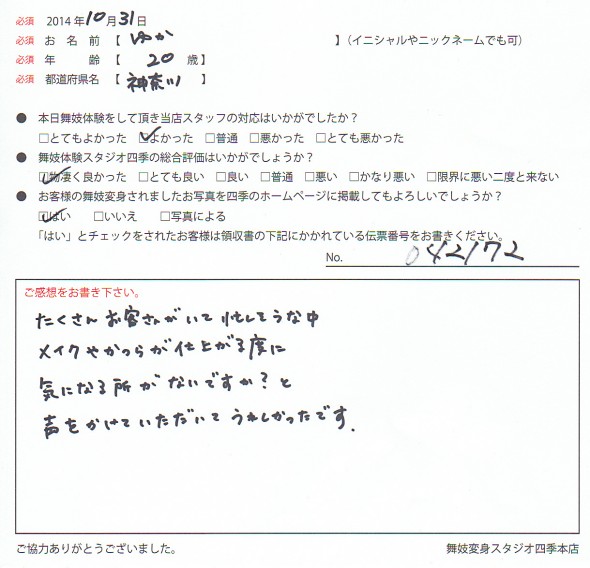 必須 2014年10月31日
必須 お名前【 ゆか 】(イニシャルやニックネームでも可)
必須 年齢【 20 歳】
必須 都道府県名【 神奈川 】
● 本日舞妓体験をして頂き当店スタッフの対応はいかがでしたか?
□とてもよかった ☑よかった □普通 □悪かった □とても悪かった
● 舞妓体験スタジオ四季の総合評価はいかがでしょうか?
☑物凄く良かった □とても良い □良い □普通 □悪い □かなり悪い □限界に悪い二度と来ない
● お客様の舞妓変身されましたお写真を四季のホームページに掲載してもよろしいでしょうか?
☑はい □いいえ □写真による
「はい」とチェックをされたお客様は領収書の下記にかかれている伝票番号をお書きください。
No. 042172
ご感想をお書き下さい。
たくさんお客さんがいて忙しそうな中
メイクやかつらが仕上がる度に
気になる所がないですか?と
声をかけていただいてうれしかったです.
ご協力ありがとうございました。
舞妓変身スタジオ四季本店